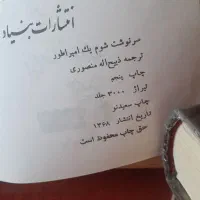 انتشارات بنیاد
سرنوشت شوم یک امپراطور
ترجمه ذبیح‌اله منصوری
چاپ پنجم
تیراژ ۳۰۰۰ جلد
چاپ سعیدنو
تاریخ انتشار ۱۳۶۸
حق چاپ محفوظ است